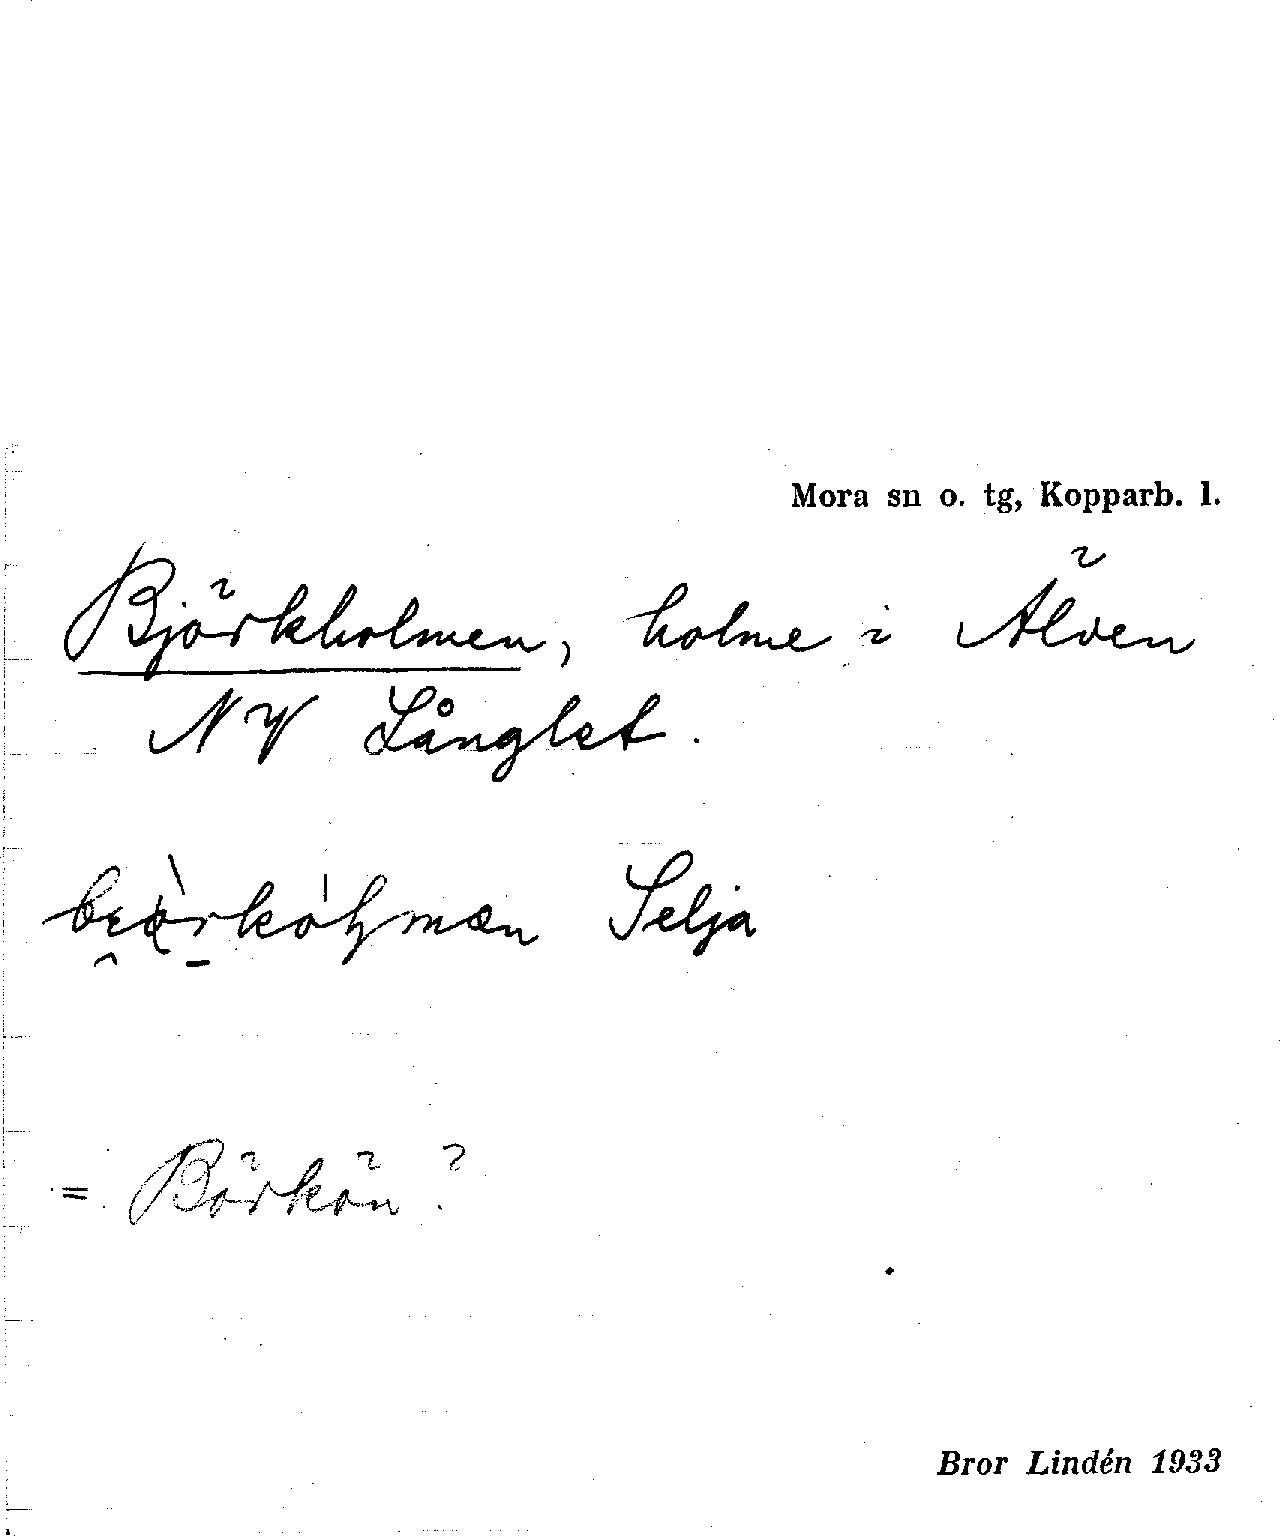 Mora sn o. tg, Kopparb. l.
Björkholmen, holme i Älven
NV Långlet.
Selja
= Börkön?
Bror Lindén 1933